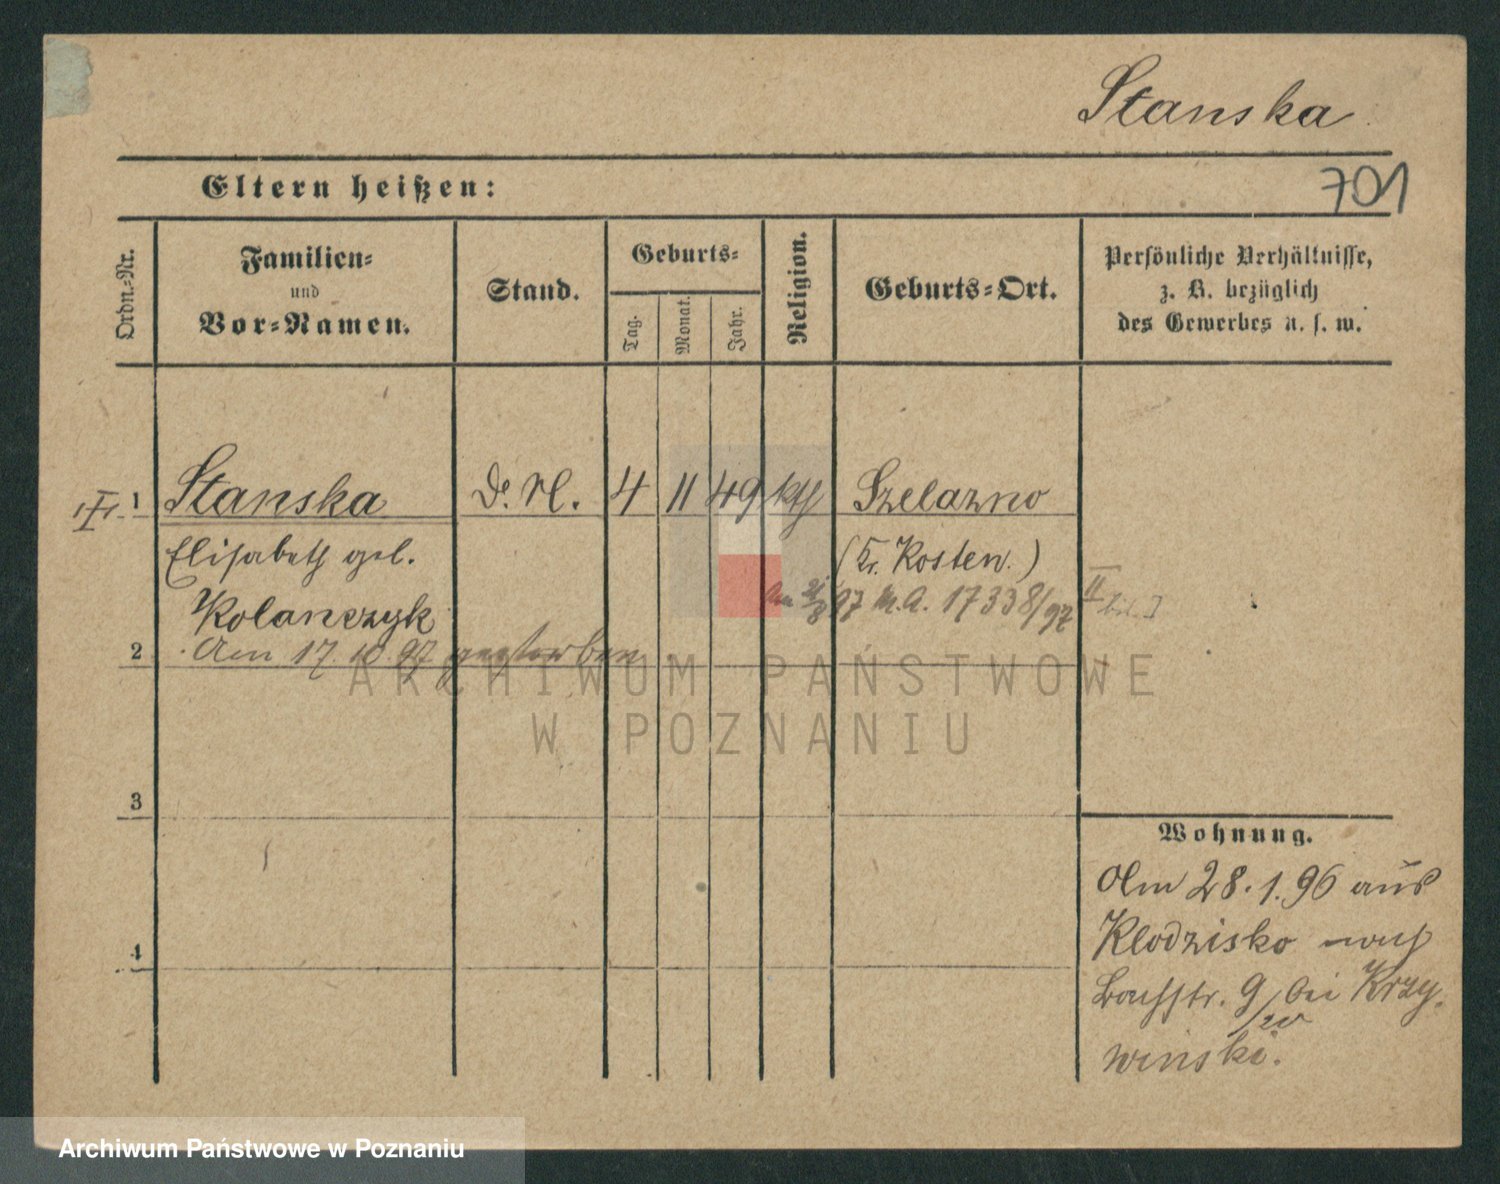 Stanska
Eltern heißen:
701
Ordn.-Nr.
Familien-
und
Vor-Namen.
Stand.
Geburts-
Tag.
Monat.
Jahr.
Religion.
Geburts-Ort.
Persönliche Verhältnisse,
z. B. bezüglich
des Gewerbes u. s. w.
1 Stanska 4 11 49 kth Szelazno
Elisabeth geb. (Kr. Kosten.)
Kolanczyk
17338/97 II
2 Am 17. 10. 97 gestorben
ARCHIWUM PAŃSTWOWE
W POZNANIU
3
Wohnung.
Am 28. 1. 96 aus
Klodzisko nach
4
Bachstr. 9 bei Krzy-
winski.
Archiwum Państwowe w Poznaniu